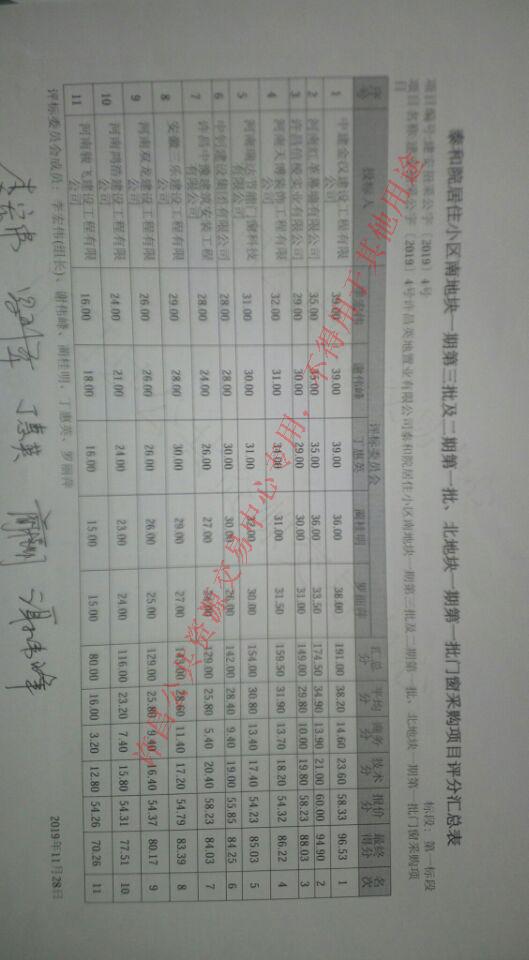 泰和院居住小区南地块一期第三批及二期第一批、北地块一期第一批门窗采购项目评分汇总表
项目编号:建安招采公字〔2019〕4号 标段:第一标段
〔2019〕4号许昌英地置业有限公司泰和院居住小区南地块一期第三批及二期第一批、北地块一期第一批门窗采购项目
序号 投标人 评标委员会 汇总分 平均分 商务分 技术分 报价分 最终得分 名次
谢伟峰 丁惠英 蔺桂明 罗丽萍
1 中建金汉建设工程有限公司 39.00 39.00 39.00 36.00 38.00 191.00 38.20 14.60 23.60 58.33 96.53 1
2 河南汇圣幕墙有限公司 35.00 35.00 35.00 36.00 33.50 174.50 34.90 13.90 21.00 60.00 94.90 2
3 许昌信棱实业有限公司 29.00 30.00 29.00 30.00 31.00 149.00 29.80 10.00 19.80 58.23 88.03 3
4 河南天博装饰工程有限公司 32.00 31.00 34.00 31.00 31.50 159.50 31.90 13.70 18.20 54.32 86.22 4
5 门窗科技有限公司 31.00 30.00 31.00 32.00 30.00 154.00 30.80 13.40 17.40 54.23 85.03 5
6 中创建设集团有限公司 28.00 28.00 30.00 30.00 26.00 142.00 28.40 9.40 19.00 55.85 84.25 6
7 许昌中豫建筑安装工程有限公司 28.00 24.00 26.00 27.00 24.00 129.00 25.80 5.40 20.40 58.23 84.03 7
8 安徽三乐建设工程有限公司 29.00 28.00 30.00 29.00 27.00 143.00 28.60 11.40 17.20 54.79 83.39 8
9 河南双龙建设工程有限公司 26.00 26.00 26.00 26.00 25.00 129.00 25.80 9.40 16.40 54.37 80.17 9
10 河南鸿浩建设工程有限公司 24.00 21.00 24.00 23.00 24.00 116.00 23.20 7.40 15.80 54.31 77.51 10
11 河南骏飞建设工程有限公司 16.00 18.00 16.00 15.00 15.00 80.00 16.00 3.20 12.80 54.26 70.26 11
评标委员会成员:李宏伟(组长)、谢伟峰、蔺桂明、丁惠英、罗丽萍
2019年11月28日
李宏伟 丁惠英 谢伟峰
许昌公共资源交易中心专用,不得用于其他用途